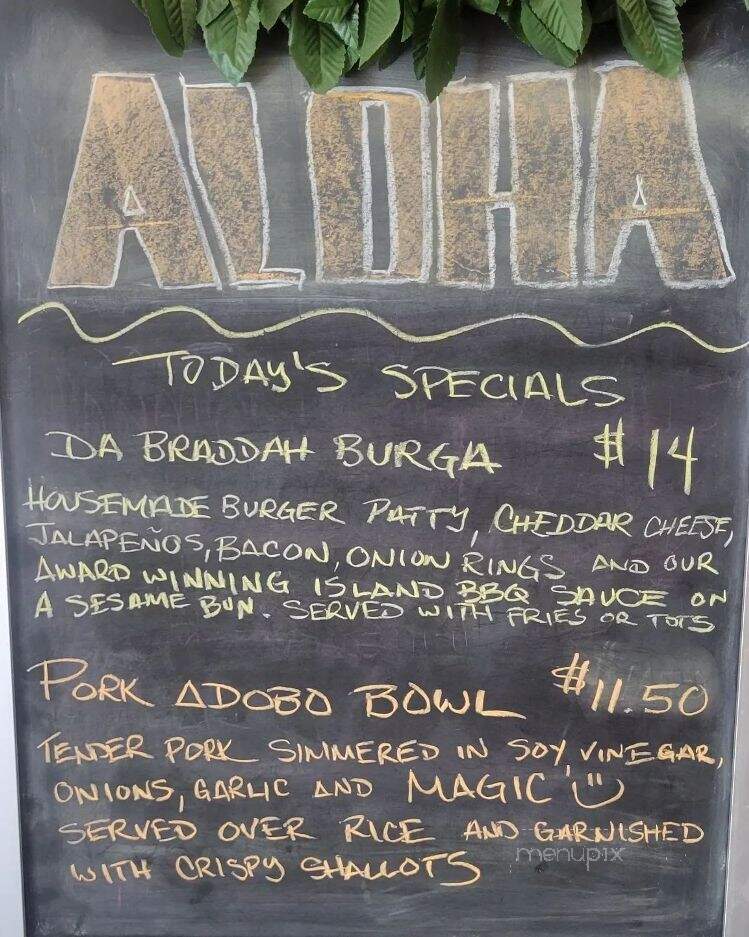 ALOHA
TODAY'S SPECIALS
DA BRADDAH BURGA $14
HOUSEMADE BURGER PATTY, CHEDDAR CHEESE,
JALAPEÑOS, BACON, ONION RINGS AND OUR
AWARD WINNING ISLAND BBQ SAUCE ON
A SESAME BUN. SERVED WITH FRIES OR TOTS
PORK ADOBO BOWL $11.50
TENDER PORK SIMMERED IN SOY, VINEGAR,
ONIONS, GARLIC AND MAGIC
SERVED OVER RICE AND GARNISHED
WITH CRISPY SHALLOTS
menupix